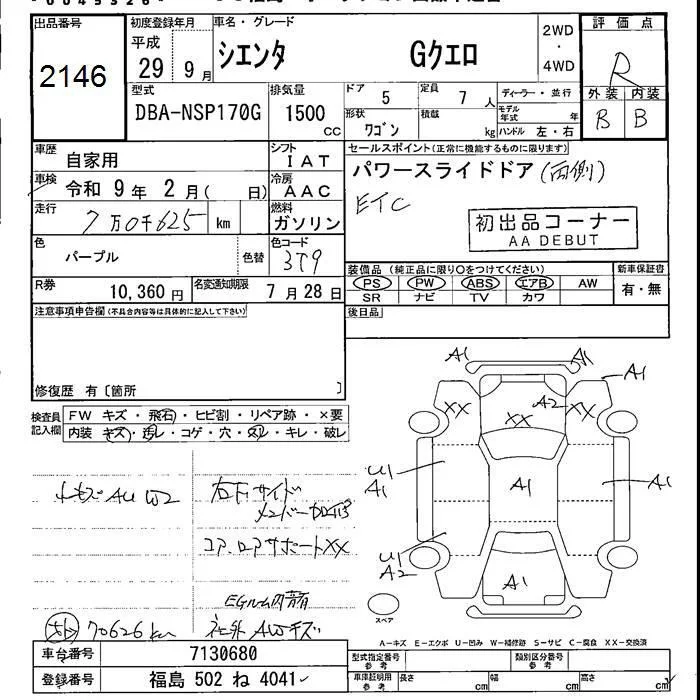 出品番号
2146
初度登録年月
平成
29 9月
車名・グレード
シエンタ Gクエロ
2WD
・
4WD
評価点
R
外装 内装
B B
型式
DBA-NSP170G
排気量
1500
cc
ドア 5
形状
ワゴン
定員 7 人
積載
kg
ディーラー・並行
モデル
年式 年
ハンドル 左・右
車歴 自家用
シフト
IAT
車検 令和 9年 2月( 日)
冷房
AAC
走行 7万0千625 km
燃料
ガソリン
色 パープル
色替
色コード
3T9
R券 10,360 円
名変通知期限 7月28日
セールスポイント(正常に機能するものに限ります)
パワースライドドア(両側)
ETC
初出品コーナー
AA DEBUT
装備品(純正品に限り○をつけてください)
PS PW ABS エアB AW
SR ナビ TV カワ
新車保証書
有・無
後日品
注意事項申告欄(不具合内容等は具体的に記入して下さい)
修復歴 有〔箇所 〕
検査員
記入欄
FW キズ・飛石・ヒビ割・リペア跡・×要
内装 キズ・汚レ・コゲ・穴・スレ・キレ・破レ
右下サイド
メンバー
コア、ロアサポートXX
EGルーム内
70626km
社外AWキズ
A1
A1
A1
XX
XX
A2
XX
U1
A1
A1
A1
U1
A2
A1
スペア
A-キズ E-エクボ U-凹み W-補修跡 S-サビ C-腐食 XX-交換済
車台番号 7130680
登録番号 福島 502 ね 4041
型式指定番号
参考
類別区分番号
参考
車庫証明用
参考
長さ cm
幅 cm
高さ cm